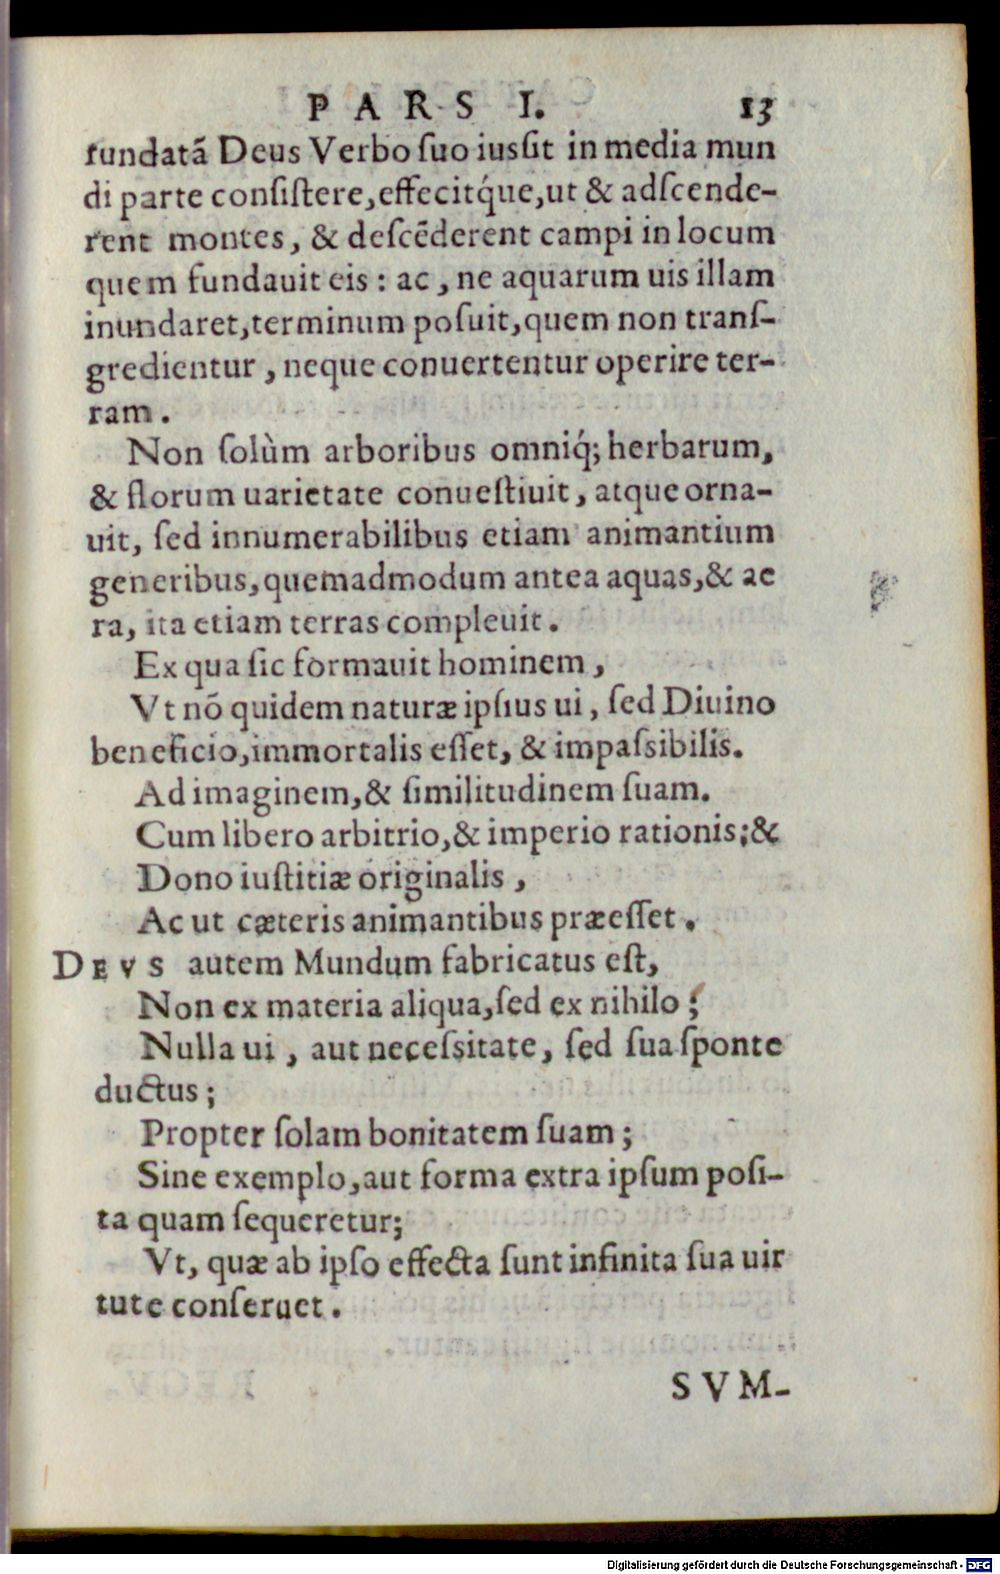 PARS I. 13
fundatã Deus Verbo ſuo iusſit in media mun
di parte conſiſtere, effecitq́ue, ut & adſcende-
rent montes, & deſcẽderent campi in locum
quem fundauit eis : ac, ne aquarum uis illam
inundaret, terminum poſuit, quem non tranſ-
gredientur, neque conuertentur operire ter-
ram.
Non ſolùm arboribus omniq́; herbarum,
& florum uarietate conueſtiuit, atque orna-
uit, ſed innumerabilibus etiam animantium
generibus, quemadmodum antea aquas, & ae
ra, ita etiam terras compleuit.
Ex qua ſic formauit hominem,
Vt nõ quidem naturæ ipſius ui, ſed Diuino
beneficio, immortalis eſſet, & impaſsibilis.
Ad imaginem, & ſimilitudinem ſuam.
Cum libero arbitrio, & imperio rationis; &
Dono iuſtitiæ originalis,
Ac ut cæteris animantibus præeſſet.
DEVS autem Mundum fabricatus eſt,
Non ex materia aliqua, ſed ex nihilo;
Nulla ui, aut neceſsitate, ſed ſua ſponte
ductus;
Propter ſolam bonitatem ſuam;
Sine exemplo, aut forma extra ipſum poſi-
ta quam ſequeretur;
Vt, quæ ab ipſo effecta ſunt infinita ſua uir
tute conſeruet.
SVM-
Digitalisierung gefördert durch die Deutsche Forschungsgemeinschaft - DFG